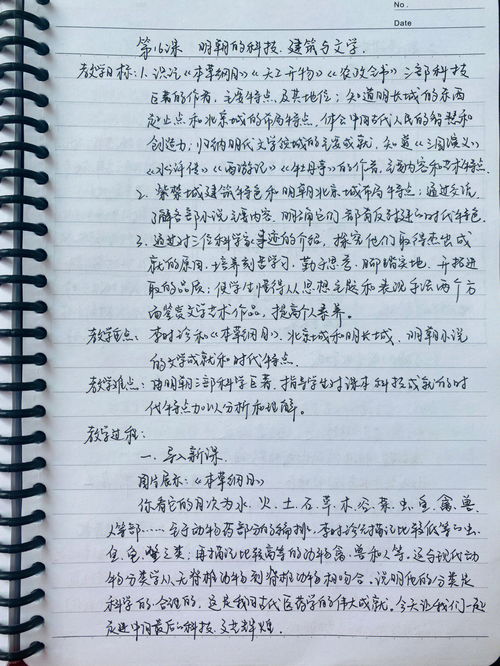 No.
Date
第16课 明朝的科技、建筑与文学.
教学目标:1.识记《本草纲目》《天工开物》《农政全书》三部科技
巨著的作者、主要特点及其地位;知道明长城的东西
起止点和北京城的布局特点,体会中国古代人民的智慧和
创造力;归纳明代文学的主要成就,知道《三国演义》
《水浒传》《西游记》《牡丹亭》的作者、主要内容和艺术特点.
2.紫禁城建筑特色和明朝北京城布局特点;通过交流
了解各部小说主要内容,明确它们都有反封建的时代特色.
3.通过对三位科学家事迹的介绍,探究他们取得杰出成
就的原因,培养刻苦学习,勤于思考,脚踏实地,开拓进
取的品质;使学生懂得从思想主题和表现手法两个方
面鉴赏文学艺术作品,提高个人素养。
教学重点:李时珍和《本草纲目》,北京城和明长城,明朝小说
的文学成就和时代特点.
教学难点:明朝三部科学巨著,指导学生对课本科技成就的时
代特点加以分析和理解。
教学过程:
一、导入新课.
图片展示:《本草纲目》
你看它的目次为水、火、土、石、草、木、谷、菜、虫、鱼、禽、兽、
人等部……至于动物药部分的编排,李时珍先描记比较低等的虫、
鱼、类;再描记比较高等的动物禽、兽和人等。这与现代动
物分类学从无脊椎动物到脊椎动物相吻合,说明他的分类是
科学的、合理的,这是我国古代医药学的伟大成就。今天让我们一起
走进中国最后的科技、文艺辉煌.